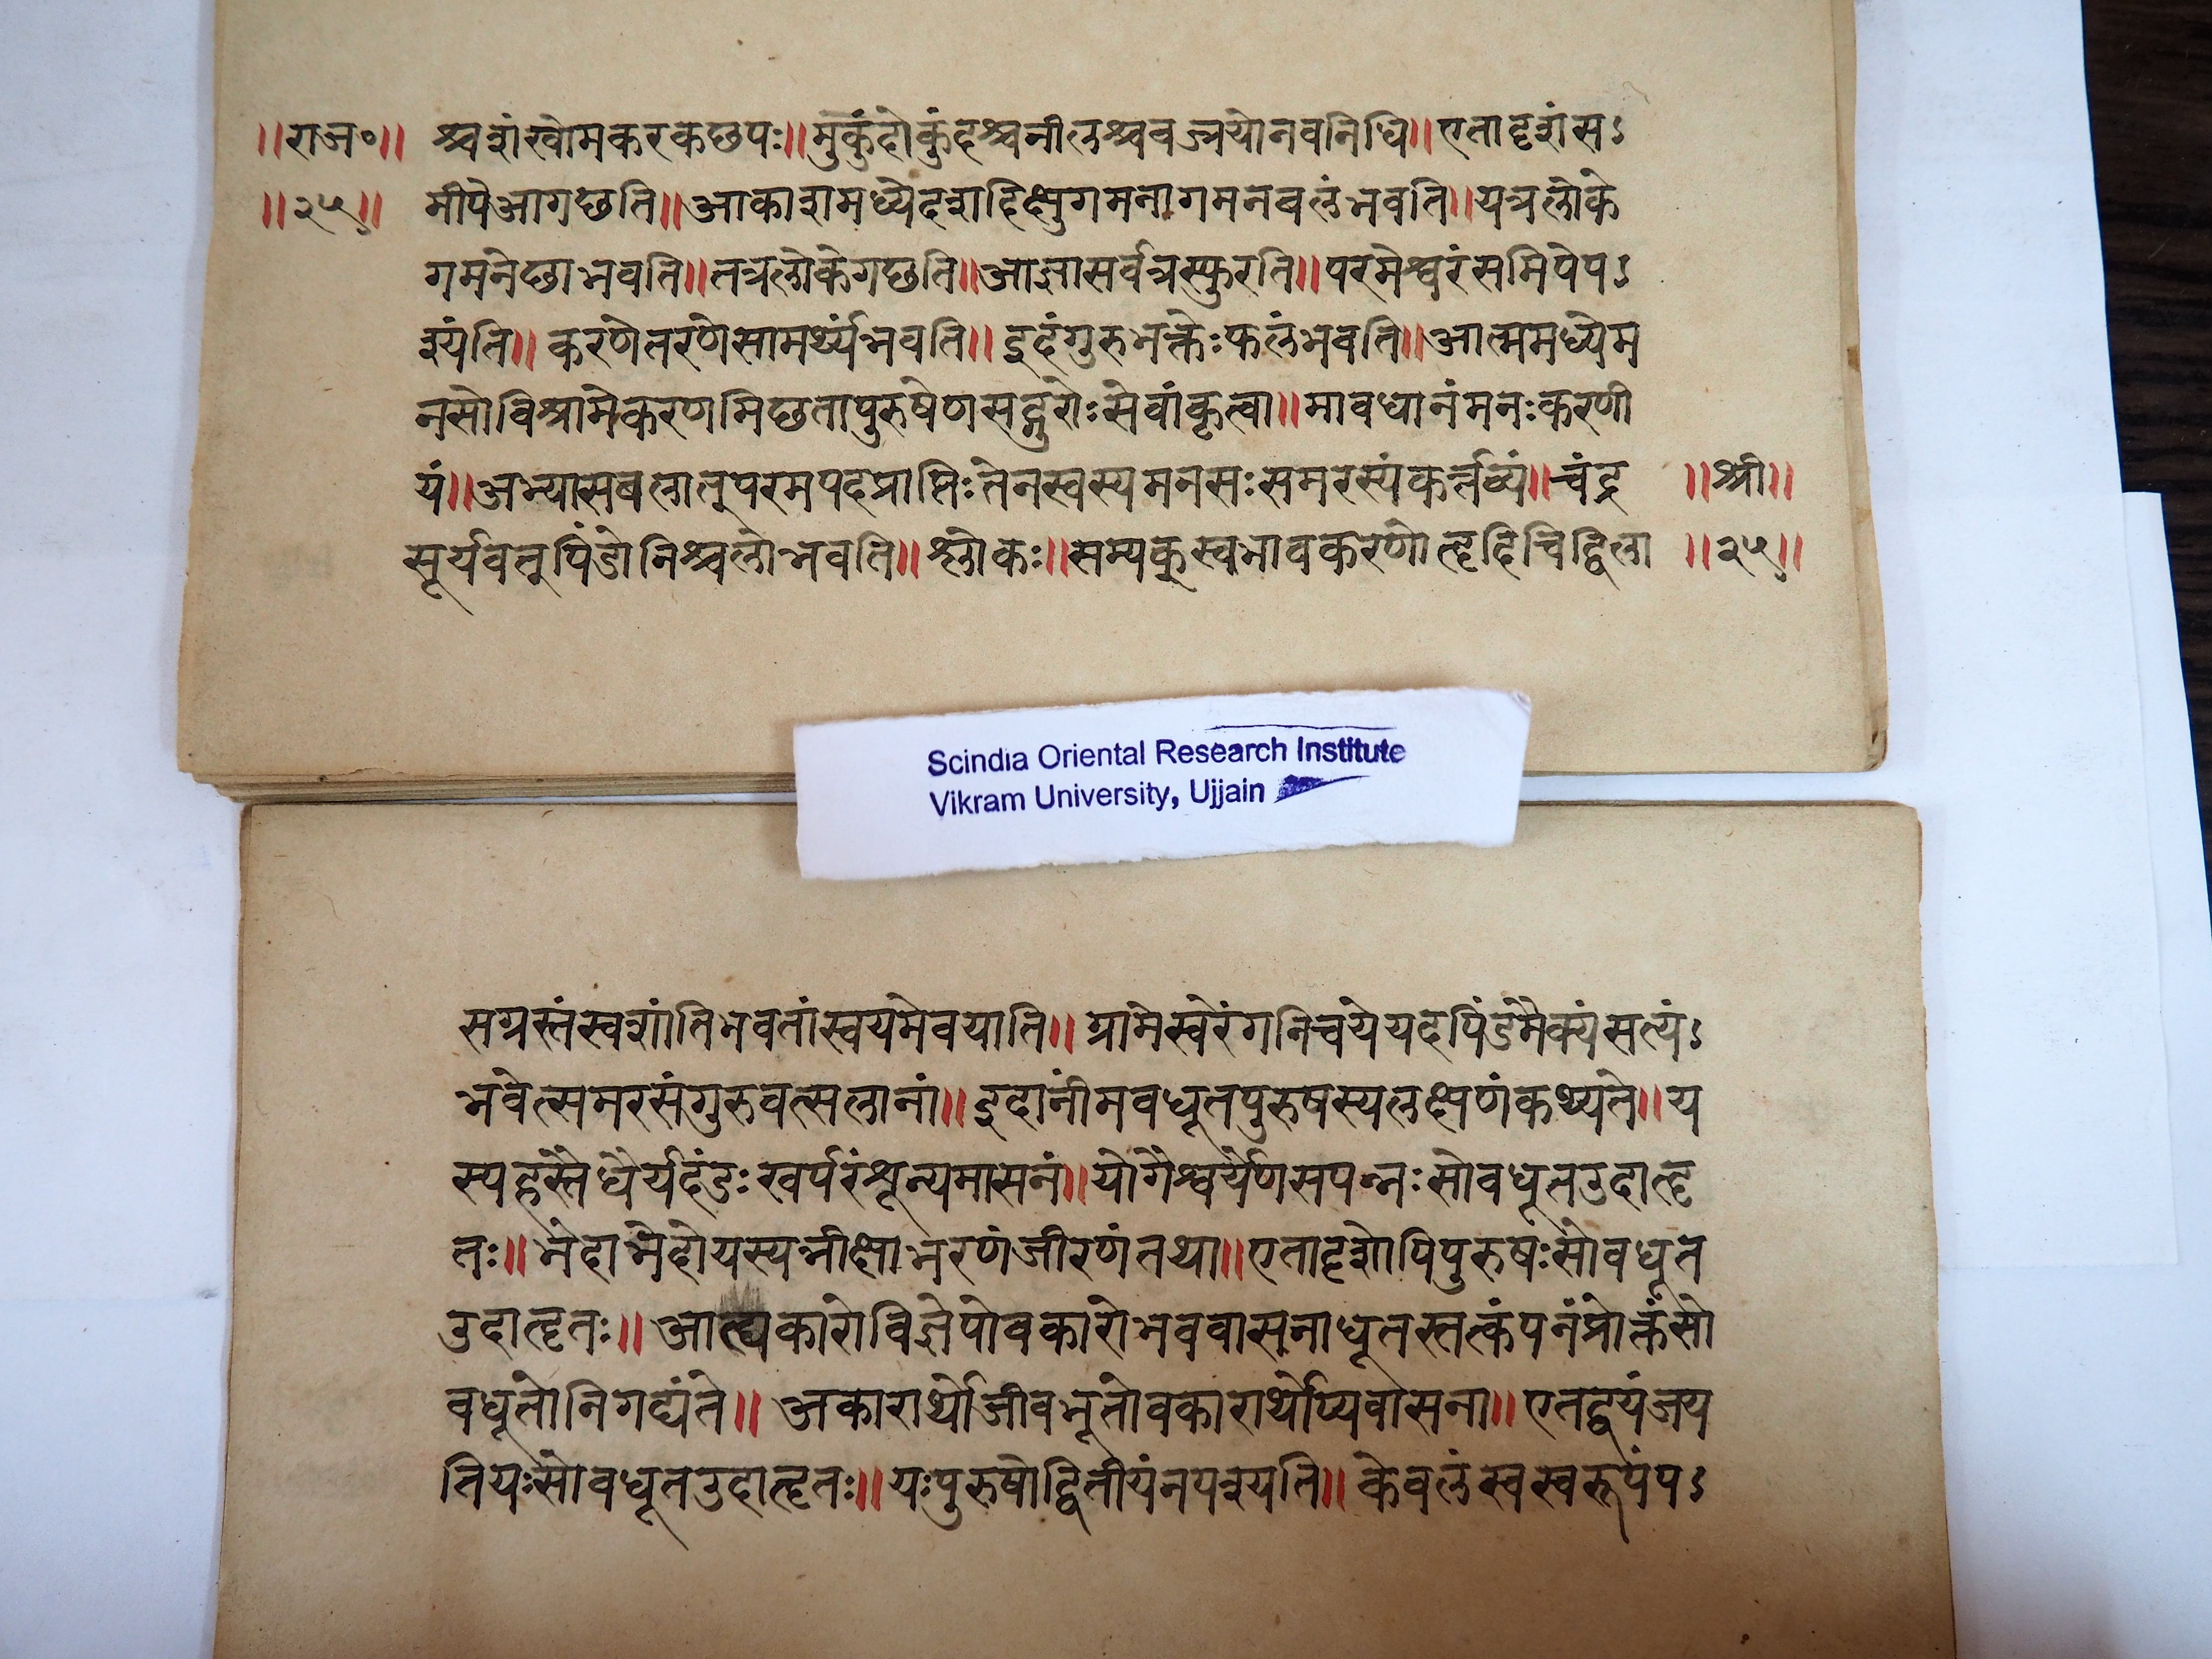 ॥राज०॥ श्चशंखोमकरकछपः॥मुकुंदोकुंदश्चनीलश्चवज्रयोनवनिधि॥एतादृशंसऽ
॥२५॥ मीपेआगछति॥आकाशमध्येदशदिक्षुगमनागमनबलंभवति॥यत्रलोके
गमनेछाभवति॥तत्रलोकेगछति॥आज्ञासर्वत्रस्फुरति॥परमेश्वरंसमिपेपऽ
श्यंति॥करणेतरणेसामर्थ्यंभवति॥इदंगुरुभक्तेःफलंभवति॥आत्ममध्येम
नसोविश्रामेकरणमिछतापुरुषेणसद्गुरोःसेवांकृत्वा॥मावधानंमनःकरणी
यं॥अभ्यासबलात्परमपदप्राप्तिःतेनस्वस्यमनसःसमरस्यंकर्त्तव्यं॥चंद्र ॥श्री॥
सूर्यवत्पिंडोनिश्चलोभवति॥श्लोकः॥सम्यक्स्वभावकरणोत्हृदिचिद्विला ॥२५॥
Scindia Oriental Research Institute
Vikram University, Ujjain
सग्रस्तंस्वशांतिभवतांस्वयमेवयाति॥ग्रामेस्वेरंगनिचयेयदपिंडमैक्यंसत्यंऽ
भवेत्समरसंगुरुवत्सलानां॥इदांनीमवधूतपुरुषस्यलक्षणंकथ्यते॥य
स्यहस्तेधैर्यदंडःखर्परंश्रून्यमासनं॥योगैश्वर्येणसपन्नःसोवधूतउदात्हृ
तः॥भेदाभेदोयस्यभीक्षाभरणंजीरणंतथा॥एतादृशोपिपुरुषःसोवधूत
उदात्हृतः॥आत्द्यकारोविज्ञेपोवकारोभववासनाधूतस्तत्कंपनंप्रोक्तंसो
वधूतोनिगद्यंते॥अकारार्थोजीवभूतोवकारार्थोप्यिवासना॥एतद्वयंजय
तियःसोवधूतउदात्हृतः॥यःपुरुषोद्वितीयंनपश्यति॥केवलंस्वस्वरूपंपऽ